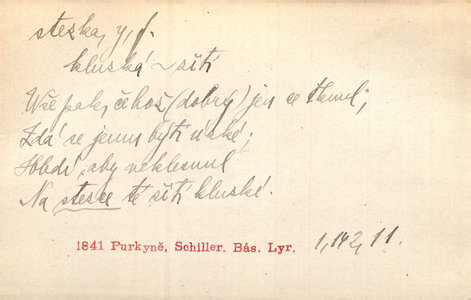 stezka, y, f.
kluská ~ sítí
Vše pak, čehož (dobrý) jen se tknul,
Zdá se jemu býti úské;
Hledí, aby neklesnul
Na stesce té sítí kluské.
1841 Purkyně, Schiller. Bás. Lyr. 1, 142, 11.